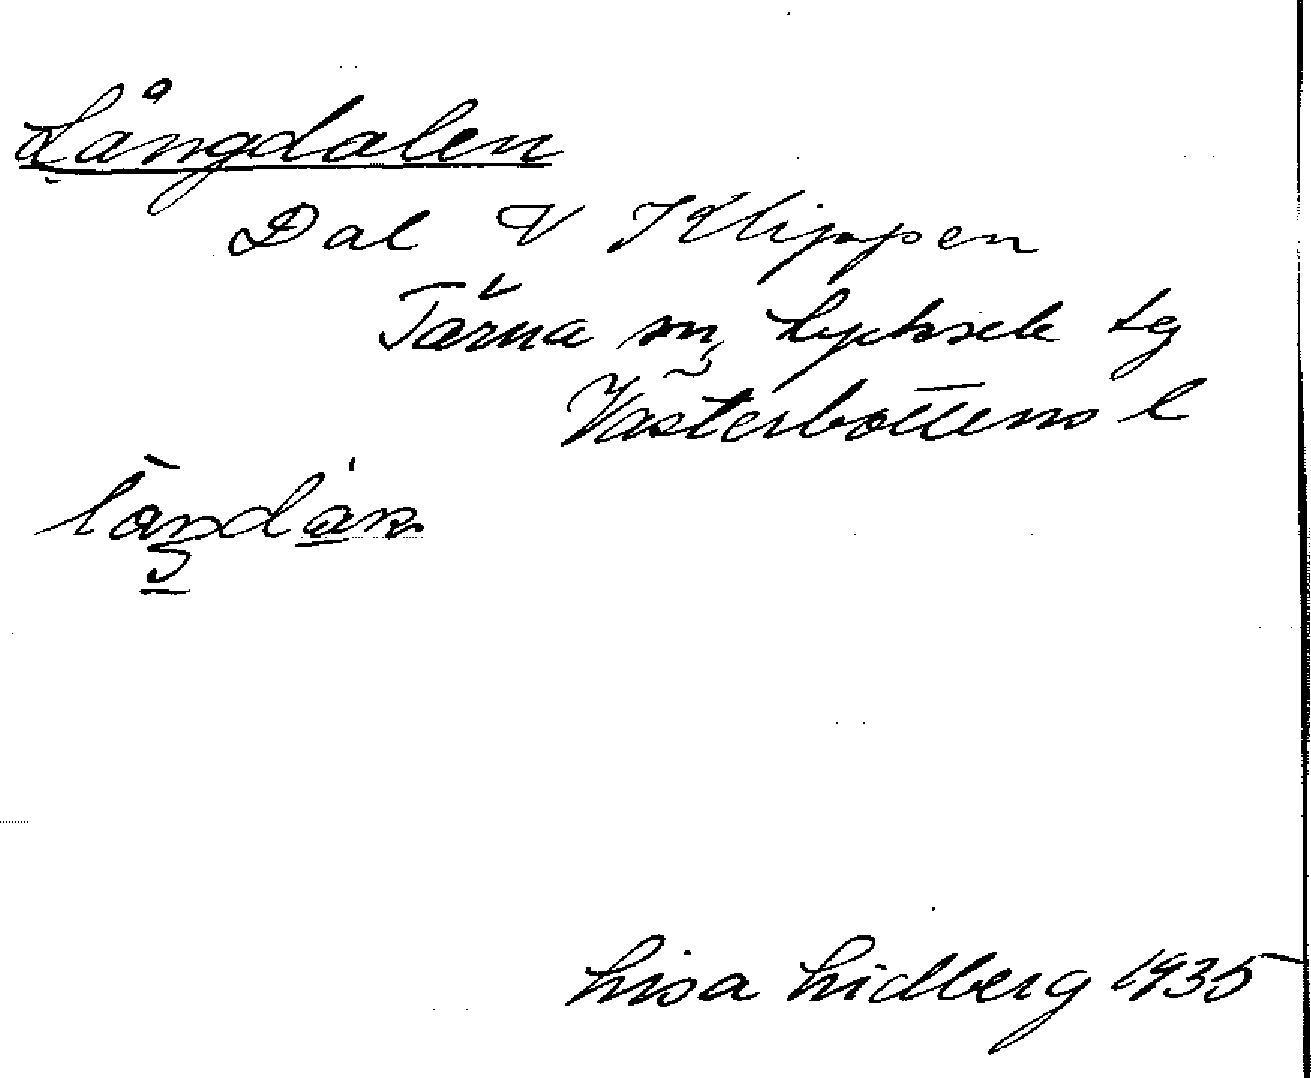 Långdalen
Dal V Klippen
Tärna sn, Lycksele lg
Västerbottens l
Lisa Lidberg 1935